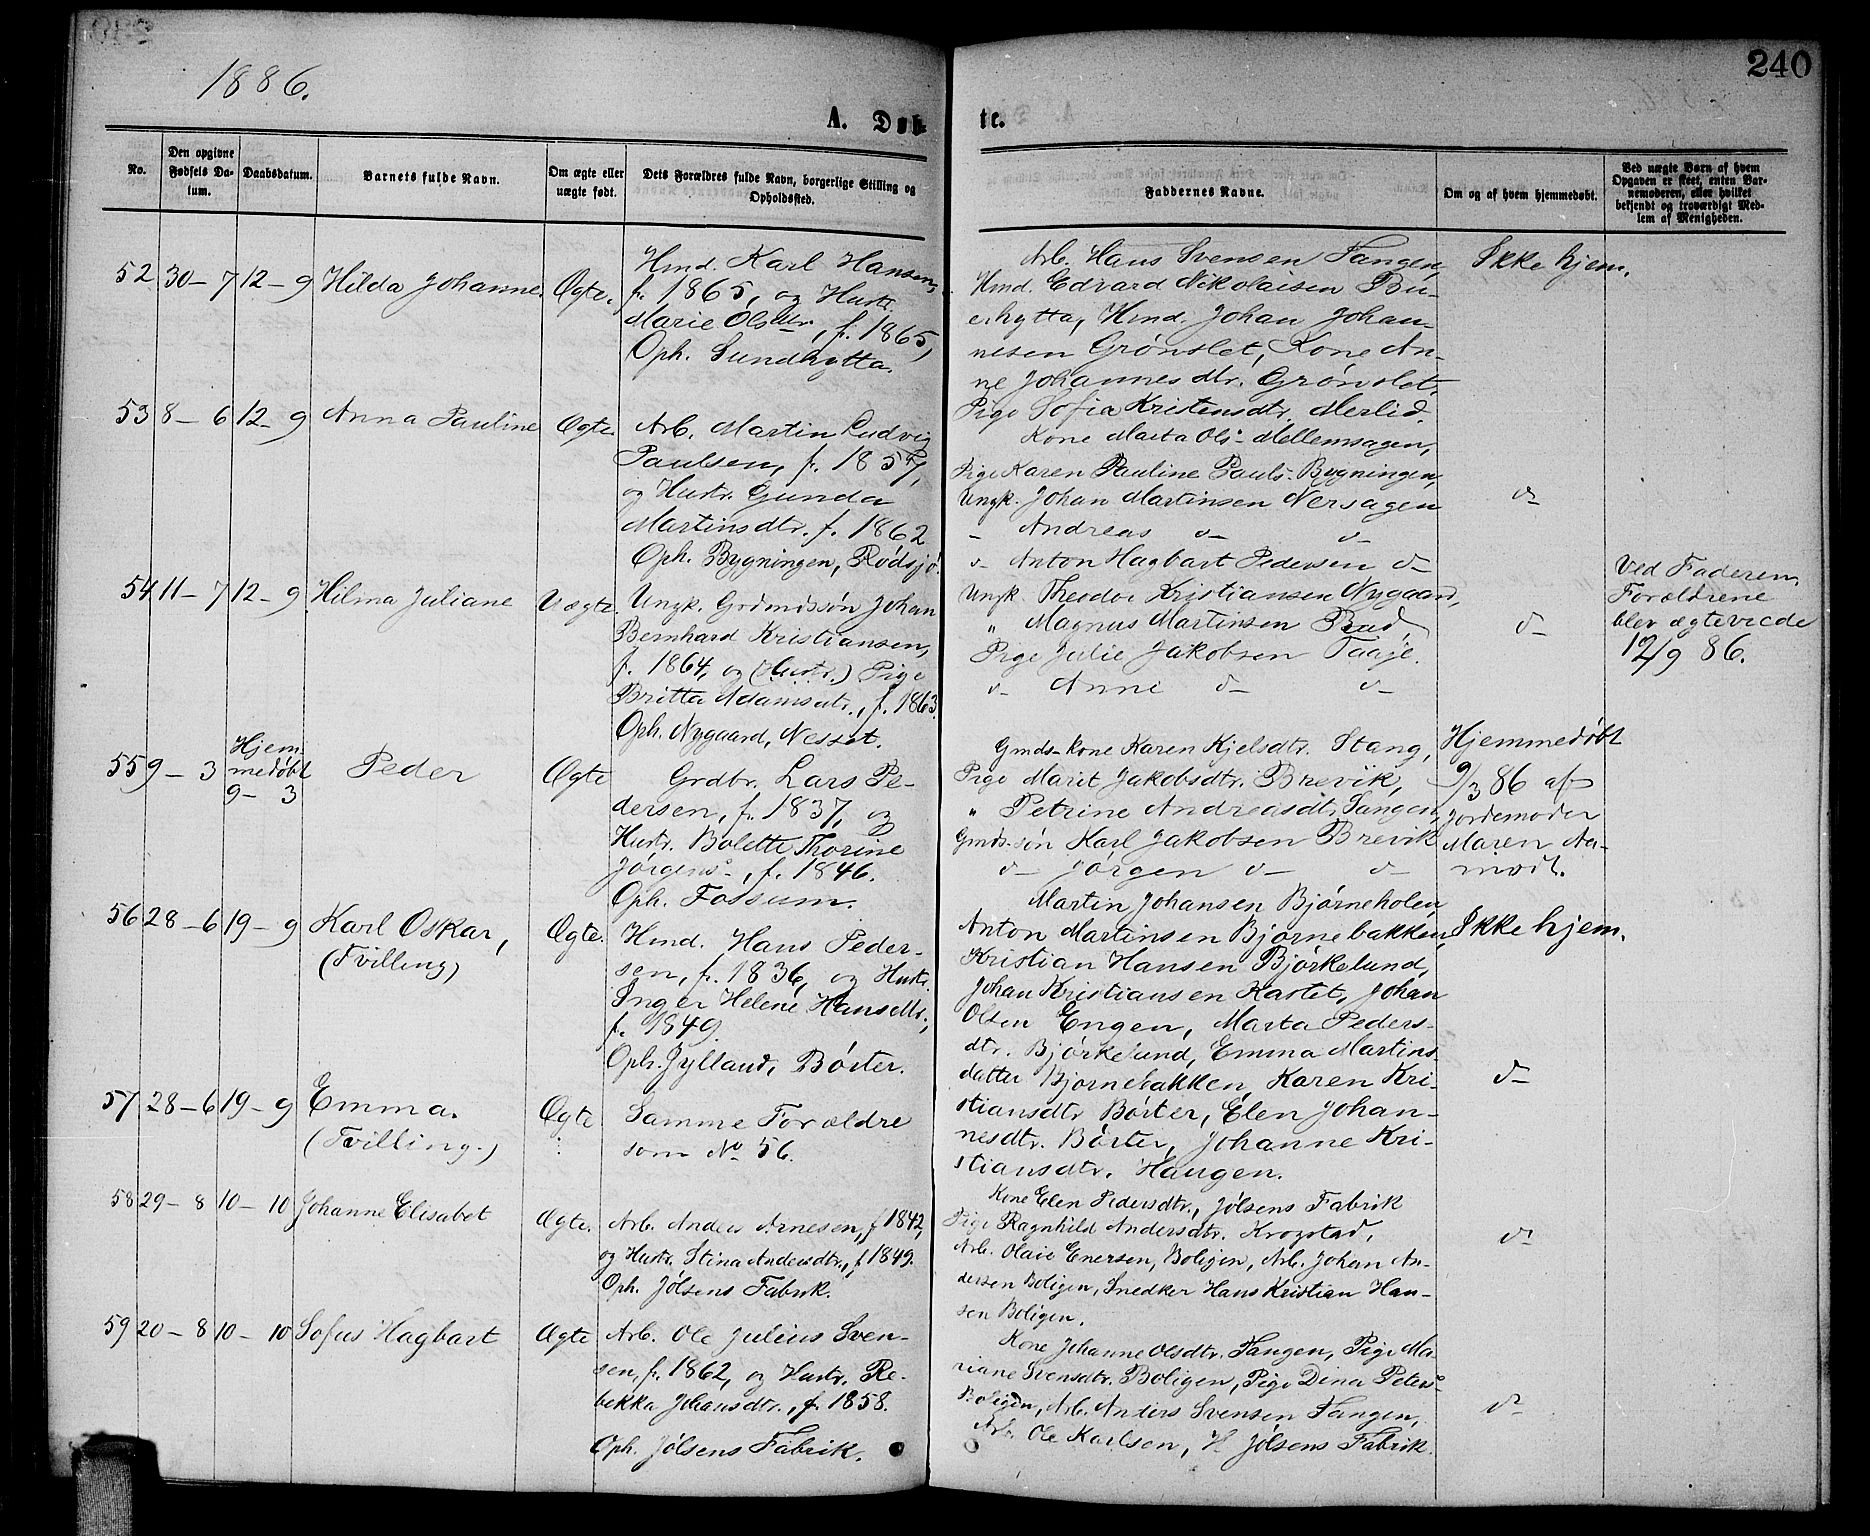 240
1886.
A. Døb-
te.
No.
Den opgivne Fødsels Da-tum.
Daabsdatum.
Barnets fulde Navn.
Om ægte eller uægte født.
Dets Forældres fulde Navn, borgerlige Stilling og Opholdssted.
Faddernes Navne.
Om og af hvem hjemmedøbt.
Ved uægte Børn af hvem Opgaven er skeet, enten Bar-nemoderen, eller hvilket bekjendt og troværdigt Med-lem af Menigheden.
52 30-7 12-9 Hilda Johanne. Ægte.
Hmd. Karl Hansen,
f. 1865, og Hustr.
Marie Olsdtr., f. 1865,
Oph. Sundhytta.
Arb. Hans Svensen Tangen,
Hmd. Edvard Nikolaisen Bu-
erhytta, Hmd. Johan Johan-
nesen Grønslet, Kone An-
ne Johannesdtr. Grønslet,
Pige Sofia Kristensdtr. Merlid.
Ikke hjem.
53 8-6 12-9 Anna Pauline Ægte
Arb. Martin Ludvig
Paulsen, f. 1857,
og Hustr. Gunda
Martinsdtr. f. 1862
Oph. Bygningen, Rødsjø.
Kone Marta Ols- Mellemsagen,
Pige Karen Pauline Pauls- Bygningen,
Ungk. Johan Martinsen Nersagen
- Andreas d- d-
d- Anton Hagbart Pedersen d-
d-
54 11-7 12-9 Hilma Juliane Uægte.
Ungk. Grdmdssøn Johan
Bernhard Kristiansen,
f. 1864, og (Hustr.) Pige
Britta Adamsdtr., f. 1863.
Oph. Nygaard, Nesset.
Ungk. Theodor Kristiansen Nygaard,
" Magnus Martinsen Bud,
Pige Julie Jakobsen Taaje.
d- Anne d- d-
d-
Ved Faderen,
Forældrene
blev ægteviede
12/9 86.
55 9-3 Hjem-
medøbt
9-3
Peder Ægte
Grdbr. Lars Pe-
dersen, f. 1837, og
Hustr. Bolette Thorine
Jørgens-, f. 1846.
Oph. Fossum.
Gmds-kone Karen Kjelsdtr. Stang,
Pige Marit Jakobsdtr. Brevik,
" Petrine Andreasdt. Tangen,
Gmds.-søn Karl Jakobsen Brevik
d- Jørgen d- d-
Hjemmedøbt
9/3 86 af
Jordemoder
Maren Aa-
modt.
56 28-6 19-9 Karl Oskar,
(Tvilling)
Ægte.
Hmd. Hans Peder-
sen, f. 1836, og Hustr.
Inger Helene Hansdtr.,
f. 1849.
Oph. Jylland, Børter.
Martin Johansen Bjørneholen,
Anton Martinsen Bjørnebakken,
Kristian Hansen Bjørkelund,
Johan Kristiansen Kastet, Johan
Olsen Engen, Marta Peders-
dtr. Bjørkelund, Emma Martins
datter Bjørnebakken, Karen Kri-
stiansdtr Børter, Elen Johan-
nesdtr. Børter, Johanne Kri-
stiansdtr. Haugen.
Ikke hjem.
57 28-6 19-9 Emma.
(Tvilling.)
Ægte
Samme Forældre
som No 56.
d-
58 29-8 10-10 Johanne Elisabet Ægte.
Arb. Anders Arnesen, f 1842,
og Hustr. Stina Andersdtr., f 1849.
Oph. Jølsens Fabrik.
Kone Elen Pedersdtr., Jølsens Fabrik
Pige Ragnhild Andersdtr. Krogstad,
Arb. Olaie Enersen, Boligen, Arb. Johan An-
dersen Boligen, Snedker Hans Kristian Han-
sen Boligen.
d-
59 20-8 10-10 Sofus Hagbart Ægte
Arb. Ole Julius Sven-
sen, f. 1862, og Hustr. Re-
bekka Johansdtr., f. 1858.
Oph. Jølsens Fabrik.
Kone Johanne Olsdtr. Tangen, Pige Ma-
riane Svensdtr. Boligen, Pige Dina Peters-
Boligen, Arb. Anders Svensen Tangen,
Arb. Ole Karlsen, H. Jølsens Fabrik.
d-